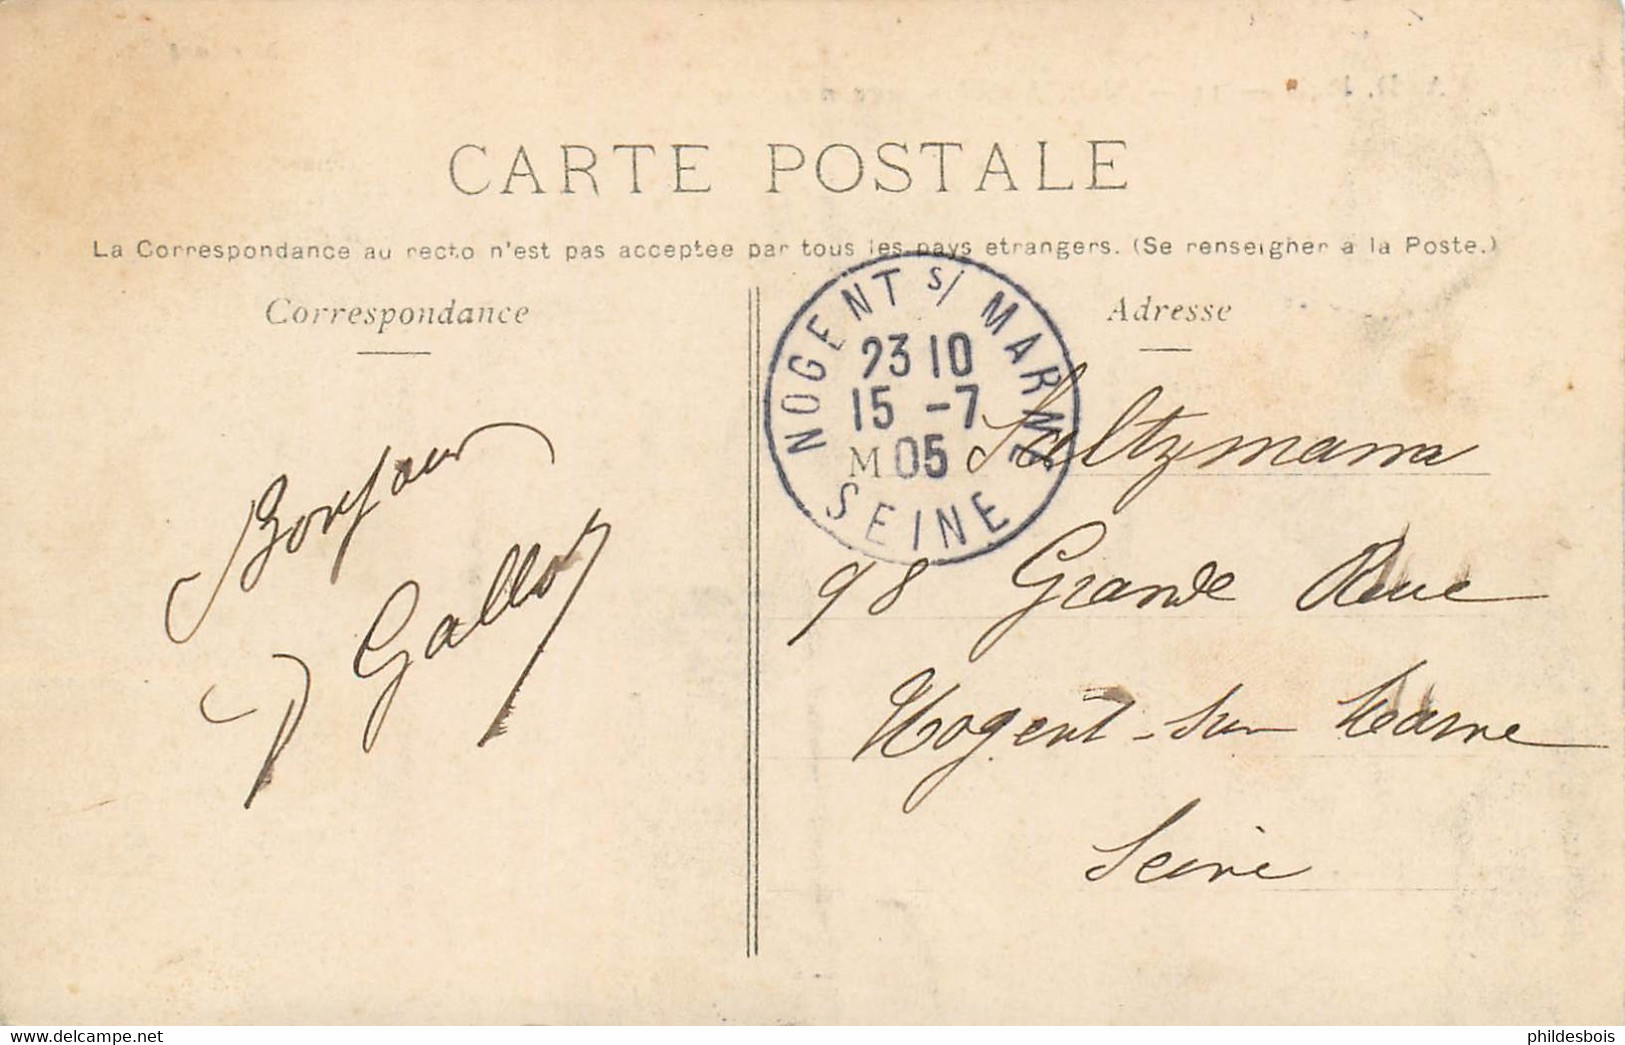 CARTE POSTALE
La Correspondance au recto n'est pas acceptee par tous les pays etrangers. (Se renseigner a la Poste.)
Correspondance
Adresse
NOGENT S/ MARNE
23 10
15 -7
05
SEINE
M
Bonjour
Saltzmann
98 Grande Rue
Nogent-sur Marne
Seine
https://www.delcampe.net
phildesbois